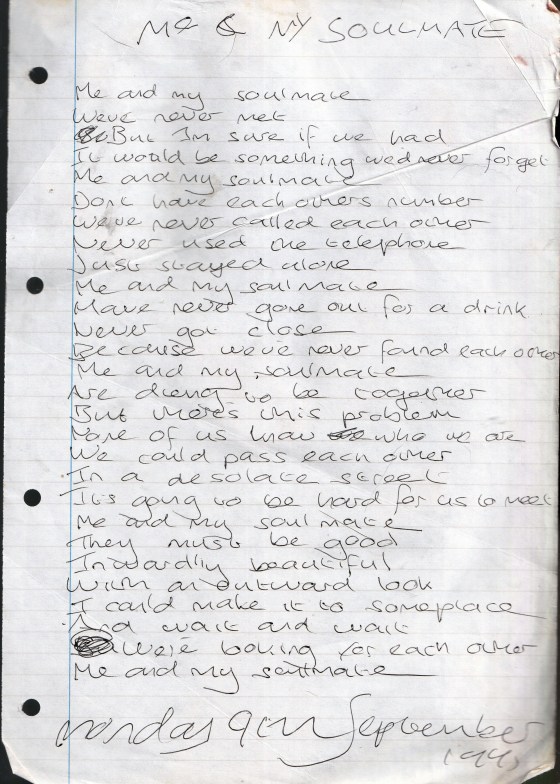 ME & MY SOULMATE
Me and my soulmate
Weve never met
But Im sure if we had
It would be something wed never forget
Me and my soulmate
Dont have each others number
We've never called each other
Never used the telephone
Just stayed alone
Me and my soulmate
Have never gone out for a drink
Never got close
Because we've never found each other
Me and my soulmate
Are dieng to be together
But theres this problem
None of us know who we are
We could pass each other
In a desolate street
It's going to be hard for us to meet
Me and my soulmate
They must be good
Inwardly beautiful
With an outward look
I could make it to someplace
And wait and wait
We're looking for each other
Me and my soulmate
Monday 9th September